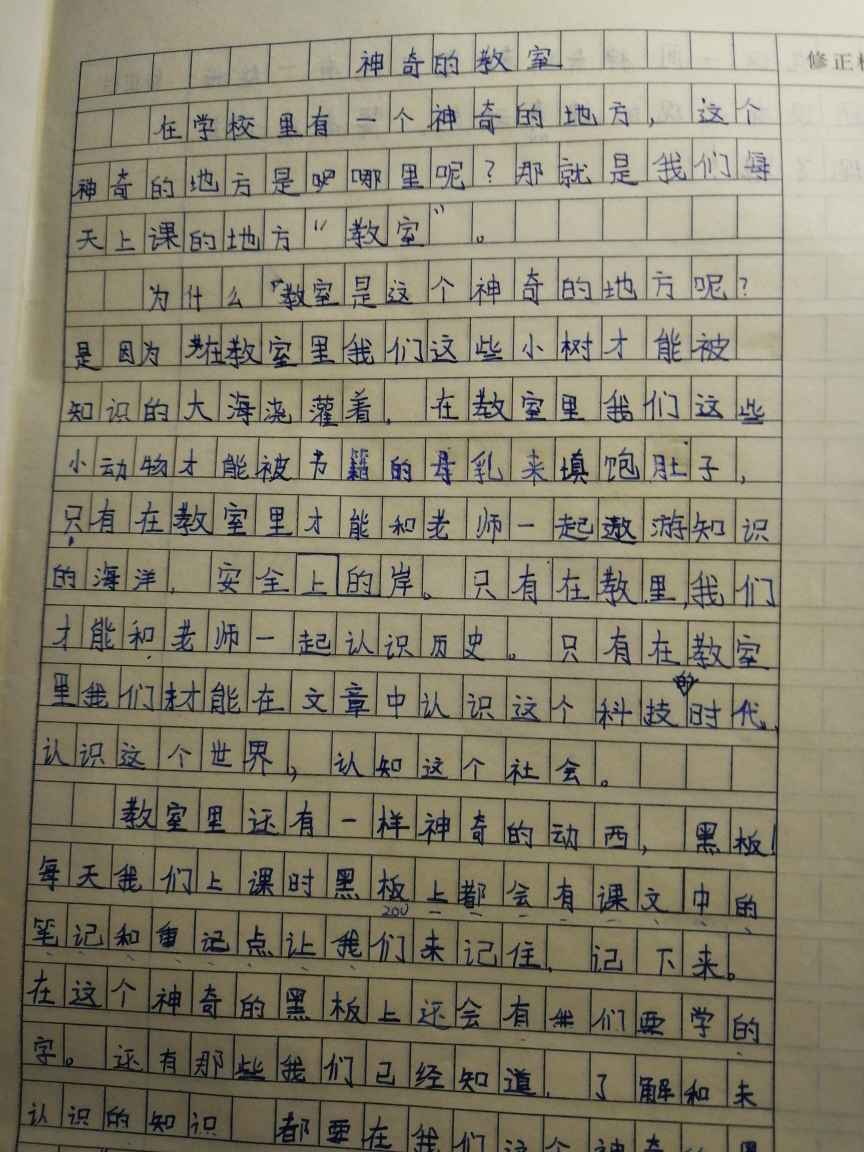 修正
神奇的教室
在学校里有一个神奇的地方，这个
神奇的地方是哪里呢？那就是我们每
天上课的地方“教室”。
为什么“教室是这个神奇的地方呢？
是因为在教室里我们这些小树才能被
知识的大海浇灌着，在教室里我们这些
小动物才能被书籍的母乳来填饱肚子，
只有在教室里才能和老师一起遨游知识
的海洋，安全上的岸。只有在教里，我们
才能和老师一起认识历史。只有在教室
里我们才能在文章中认识这个科技的时代，
认识这个世界，认知这个社会。
教室里还有一样神奇的动西，黑板！
每天我们上课时黑板上都会有课文中的
200
笔记和重记点让我们来记住，记下来。
在这个神奇的黑板上还会有我们要学的
字。还有那些我们已经知道，了解和未
认识的知识 都要在我们这个神奇的黑